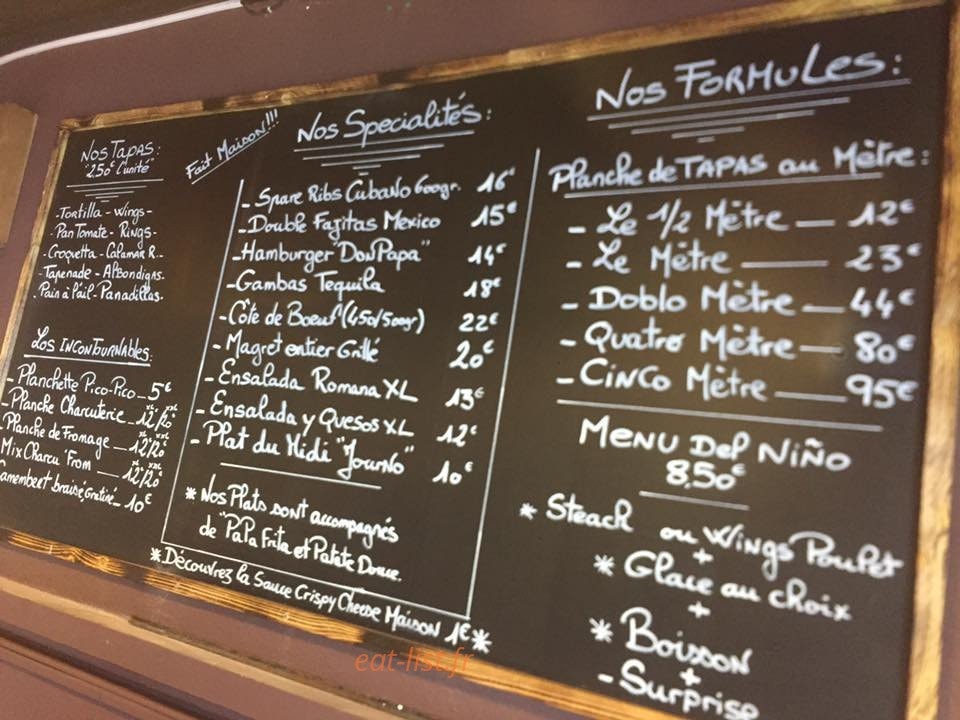 Nos Tapas:
2.50€ l'unité
-Tortilla - Wings-
-Pan Tomate - Rings-
-Croquetta - Calamar R.-
-Tapenade - Albondigas.
-Pain à l'ail - Panadillas.
Los Incontournables:
- Planchette Pico-Pico_5€
- Planche Charcuterie_12/20€ XL XXL
- Planche de Fromage_12/20€ XL XXL
Mix Charcu'From_12/20€ XL XXL
Camembert braisé, Gratiné_10€
Fait Maison!!!
Nos Specialités:
- Spare Ribs Cubano 600gr. 16€
- Double Fajitas Mexico 15€
- Hamburger "Don Papa" 14€
- Gambas Tequila 18€
- Côte de Boeuf (450/500gr) 22€
- Magret entier Grillé 20€
- Ensalada Romana XL 13€
- Ensalada y Quesos XL 12€
- Plat du Midi "Journo" 10€
* Nos Plats sont accompagnés
de "Papa Frita et Patate Douce.
*Découvrez la Sauce Crispy Cheese Maison 1€*
Nos Formules:
Planche de TAPAS au Mètre:
- Le 1/2 Mètre — 12€
- Le Mètre — 23€
- Doblo Mètre — 44€
- Quatro Mètre — 80€
- Cinco Mètre — 95€
Menu Del Niño
8.50€
* Steack ou Wings Poulet
+
* Glace au choix
+
* Boisson
+
- Surprise
eat-list.fr